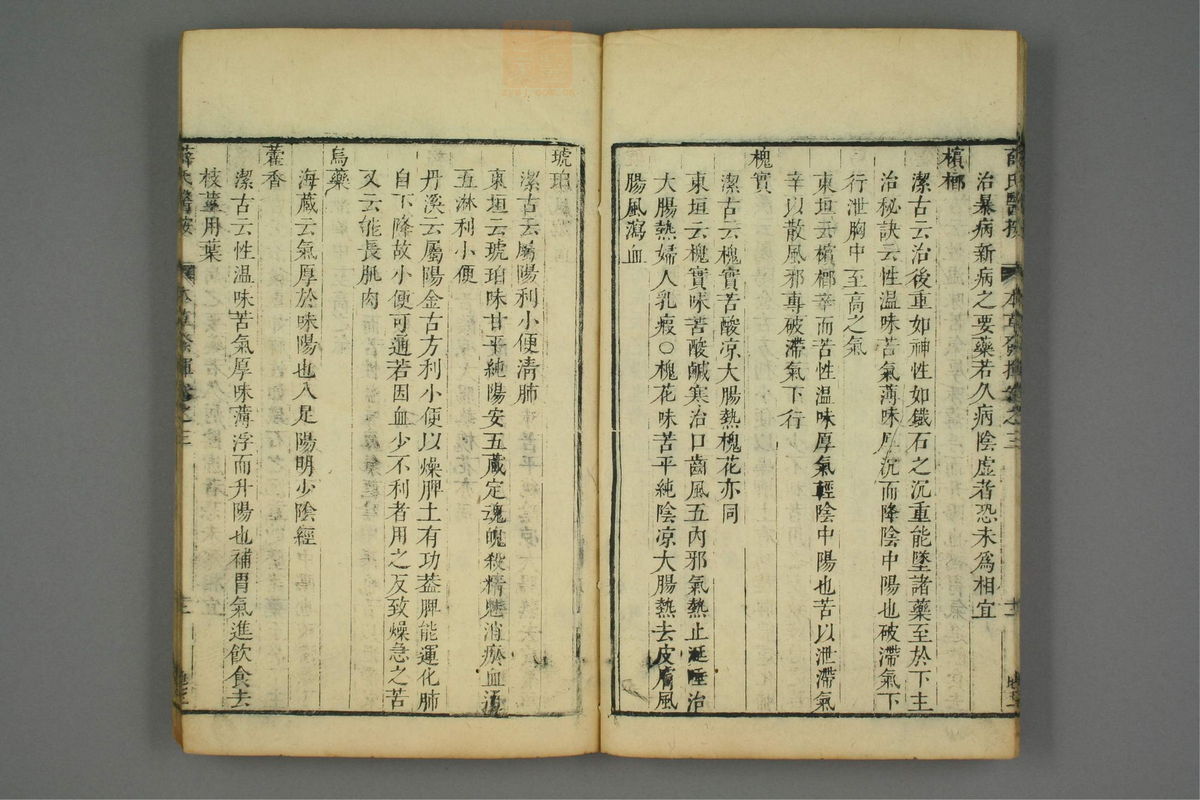 薛氏醫按 本草發揮卷之三
治暴病新病之要藥若久病陰虛者恐未為相宜
檳榔
潔古云治後重如神性如鐵石之沉重能墜諸藥至於下主
治秘訣云性温味苦氣薄味厚沉而降陰中陽也破滯氣下
行泄胸中至高之氣
東垣云檳榔辛而苦性温味厚氣輕陰中陽也苦以泄滯氣
辛以散風邪專破滯氣下行
槐實
潔古云槐實苦酸凉大腸熱槐花亦同
東垣云槐實味苦酸鹹寒治口齒風五内邪氣熱止涎唾治
大腸熱婦人乳瘕○槐花味苦平純陰凉大腸熱去皮膚風
腸風瀉血
琥珀
潔古云屬陽利小便清肺
東垣云琥珀味甘平純陽安五藏定魂魄殺精魅消瘀血通
五淋利小便
丹溪云屬陽金古方利小便以燥脾土有功葢脾能運化肺
自下降故小便可通若因血少不利者用之反致燥急之苦
又云能長肌肉
烏藥
海藏云氣厚於味陽也入足陽明少陰經
藿香
潔古云性温味苦氣厚味薄浮而升陽也補胃氣進飲食去
枝莖用葉
薛氏醫按 本草發揮卷之三